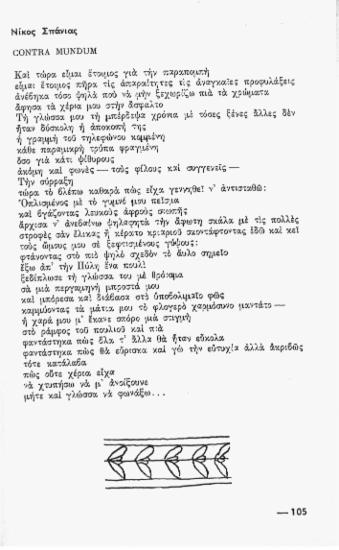 Νίκος Σπάνιας
CONTRA MUNDUM
Καὶ τώρα εἶμαι ἕτοιμος γιὰ τὴν παραπομπὴ
εἶμαι ἕτοιμος πῆρα τὶς ἀπαραίτητες τὶς ἀναγκαῖες προφυλάξεις
ἀνέβηκα τόσο ψηλὰ ποὺ νὰ μὴν ξεχωρίζω πιὰ τὰ χρώματα
ἄφησα τὰ χέρια μου στὴν ἄσφαλτο
Τὴ γλώσσα μου τὴ μπέρδεψα χρόνια μὲ τόσες ξένες ἄλλες δὲν
ἦταν δύσκολη ἡ ἀποκοπή της
ἡ γραμμὴ τοῦ τηλεφώνου κομμένη
κάθε παραμικρὴ τρύπα φραγμένη
ὅσο γιὰ κάτι ψίθυρους
ἀκόμη καὶ φωνὲς — τοὺς φίλους καὶ συγγενεῖς —
Τὴν σύρραξη
τώρα τὸ βλέπω καθαρὰ πὼς εἶχα γεννηθεῖ ν' ἀντισταθῶ:
Ὁπλισμένος μὲ τὸ γυμνό μου πεῖσμα
καὶ βγάζοντας λευκοὺς ἀφροὺς σιωπῆς
ἄρχισα ν' ἀνεβαίνω ψηλαφητὰ τὴν ἄφωτη σκάλα μὲ τὶς πολλὲς
στροφὲς σὰν ἕλικας ἢ κέρατο κριαριοῦ σκοντάφτοντας ἐδῶ καὶ κεῖ
τοὺς ὤμους μου σὲ ξεφτισμένους γύψους:
φτάνοντας στὸ πιὸ ψηλὸ σχεδὸν τὸ ἄυλο σημεῖο
ἔξω ἀπ' τὴν Πύλη ἕνα πουλὶ
ξεδίπλωσε τὴ γλώσσα του μὲ θρόισμα
σὰ μιὰ περγαμηνὴ μπροστά μου
καὶ μπόρεσα καὶ διάβασα στὸ ὑποβολιμαῖο φῶς
καμμύοντας τὰ μάτια μου τὸ φλογερὸ χαρμόσυνο μαντάτο —
ἡ χαρά μου μ' ἔκανε σπόρο μιὰ στιγμὴ
στὸ ράμφος τοῦ πουλιοῦ καὶ πιὰ
φαντάστηκα πὼς ὅλα τ' ἄλλα θὰ ἦταν εὔκολα
φαντάστηκα πὼς θὰ εὕρισκα καὶ γὼ τὴν εὐτυχία ἀλλὰ ἀκριβῶς
τότε κατάλαβα
πὼς οὔτε χέρια εἶχα
νὰ χτυπήσω νὰ μ' ἀνοίξουνε
μήτε καὶ γλώσσα νὰ φωνάξω...
— 105